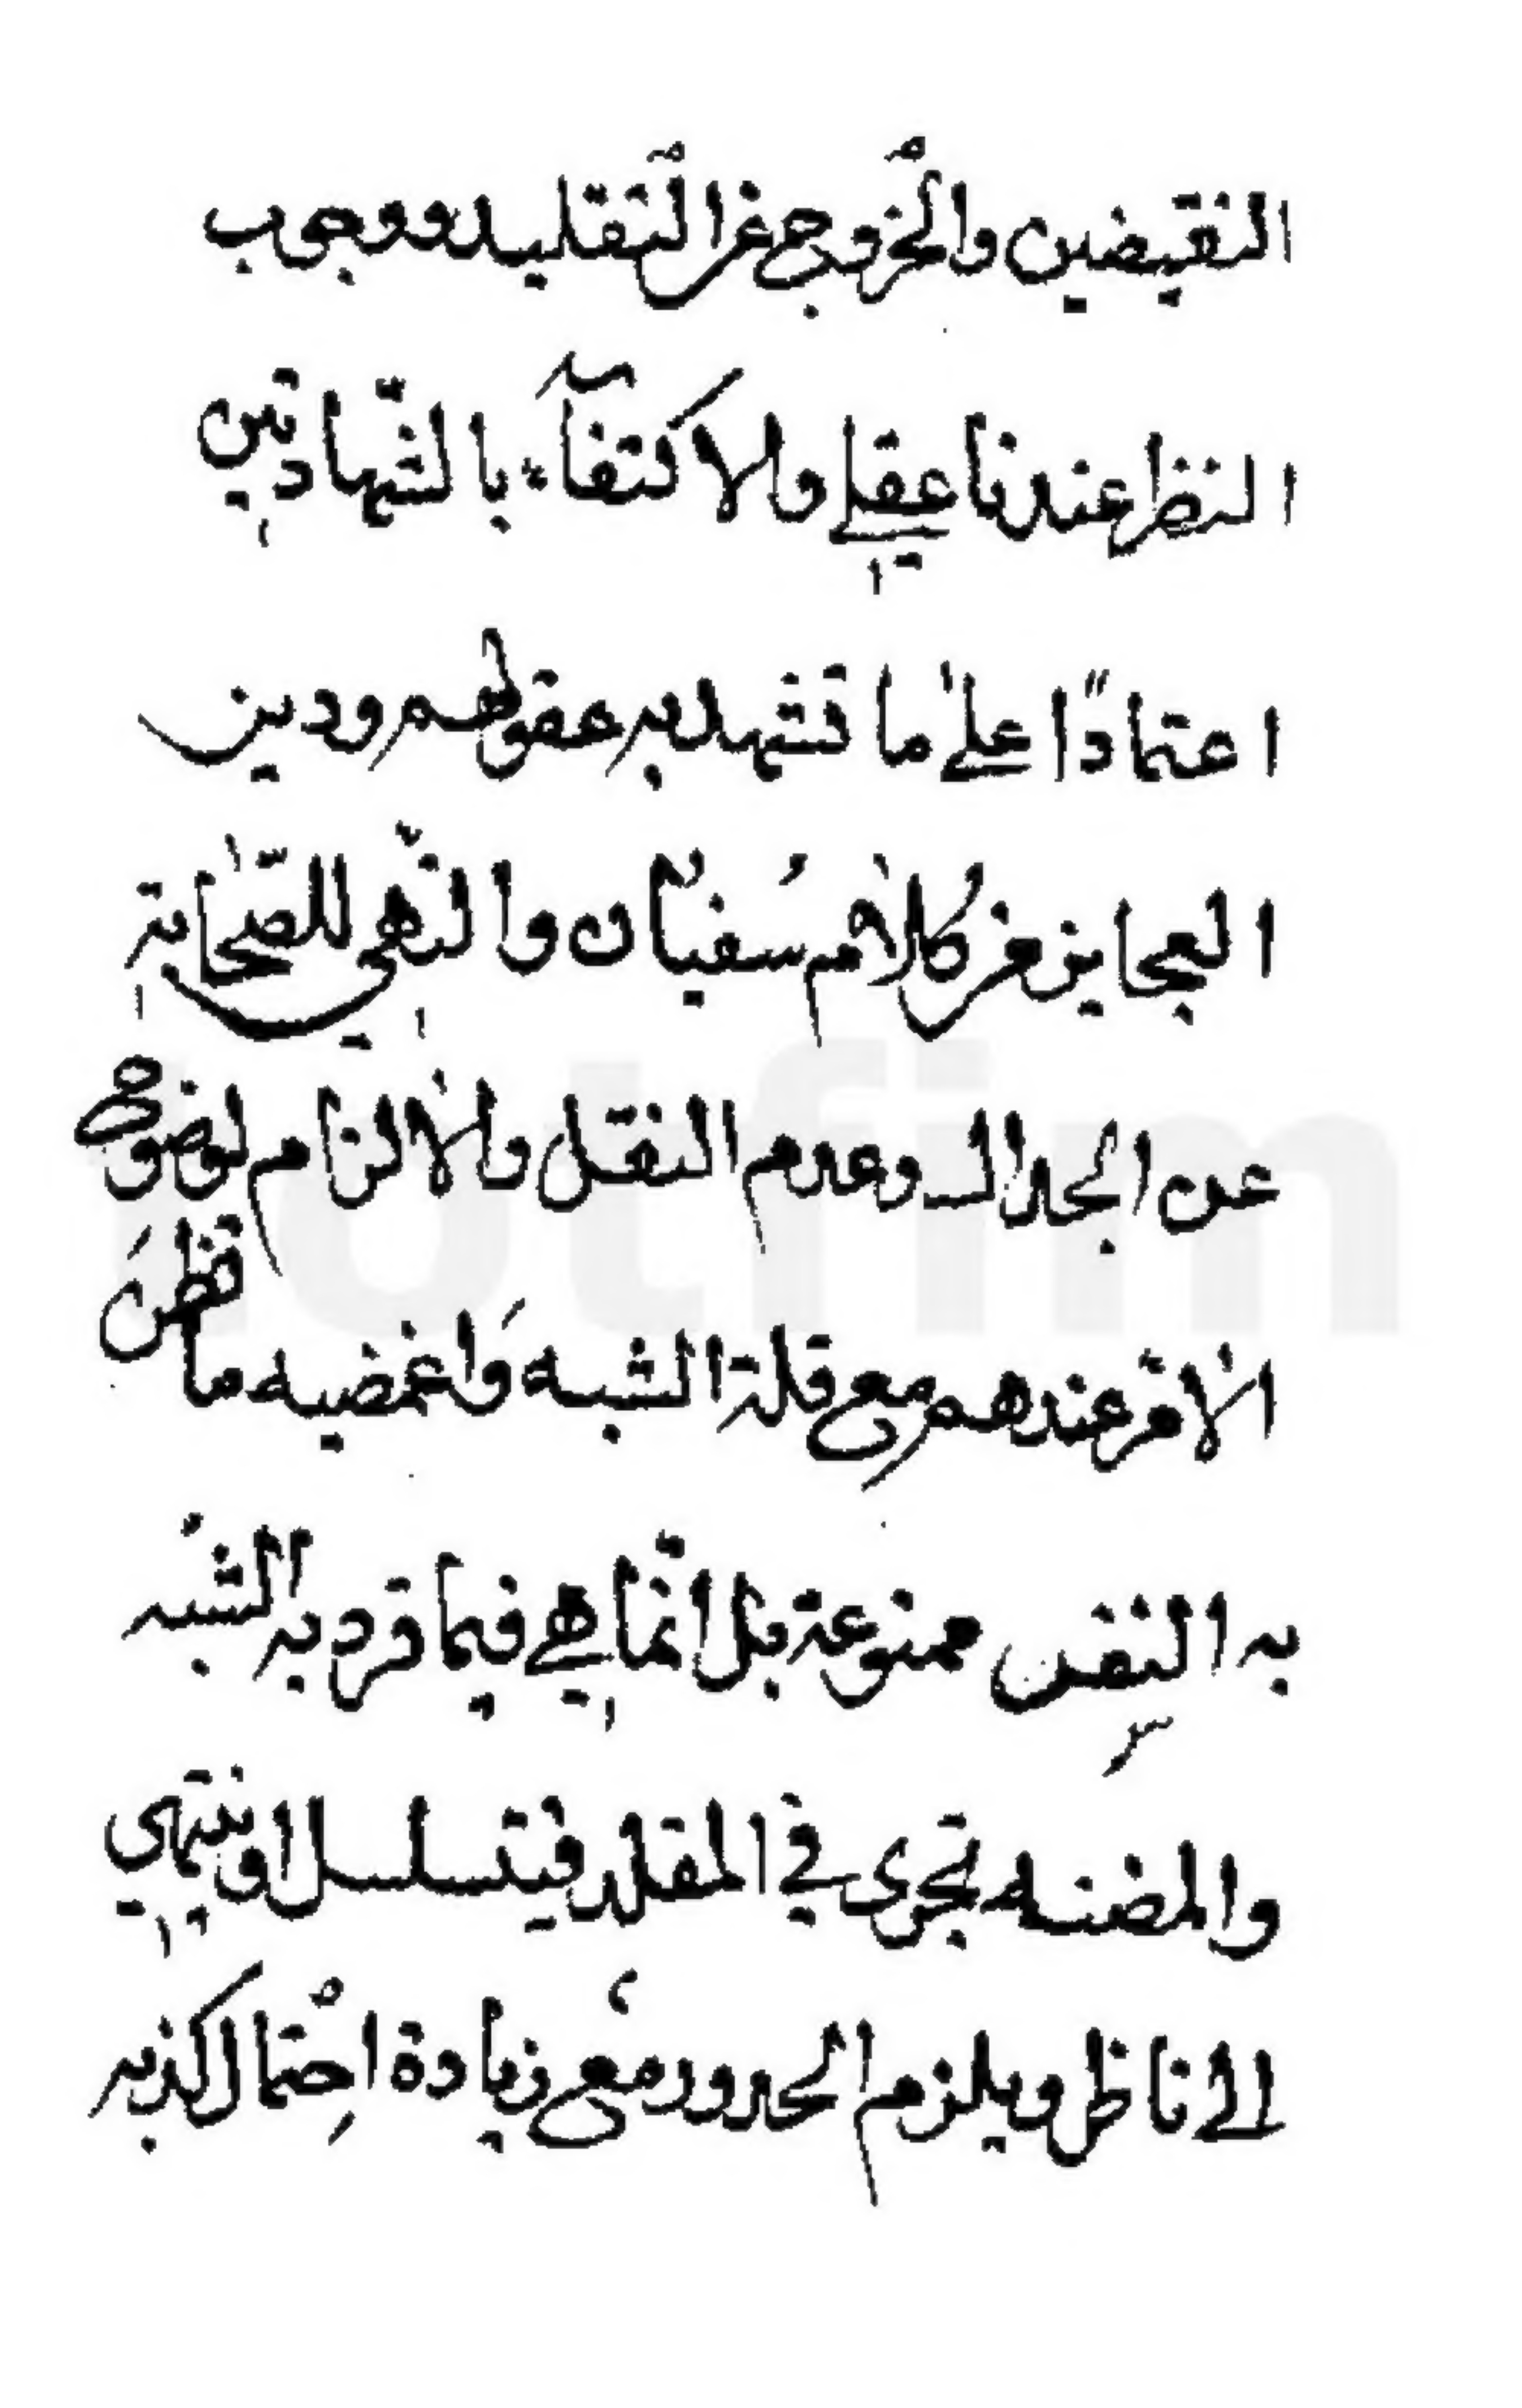 النقيضين والخروج عن التقليد ووجوب
النظر عندنا عقلي والاكتفآء بالشّهادتين
اعتمادًا علىٰ ما تشهد به عقولهم ودين
العجايز من كلام سُفيان والنّهي للصّحابة
عن الجدال وعدم النقل والالزام لوضوح
الامر عندهم مع قلة الشبه وَاغمضيه ما تظنَ
به النفس ممنوعة بل انّما هي فيما قرد به الشبه
والمضنه تجرى في المقلد فيتسلسل او ينتهي
الى ناظر ويلزم المحدور مع زيادة احتمال كذبه